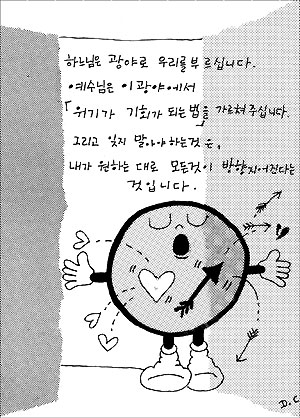 하느님은 광야로 우리를 부르십니다.
예수님은 이 광야에서
「위기가 기회가 되는 법」을 가르쳐주십니다.
그리고 잊지 말아야 하는 것은,
내가 원하는 대로 모든것이 방향지어진다는
것입니다.
D.C